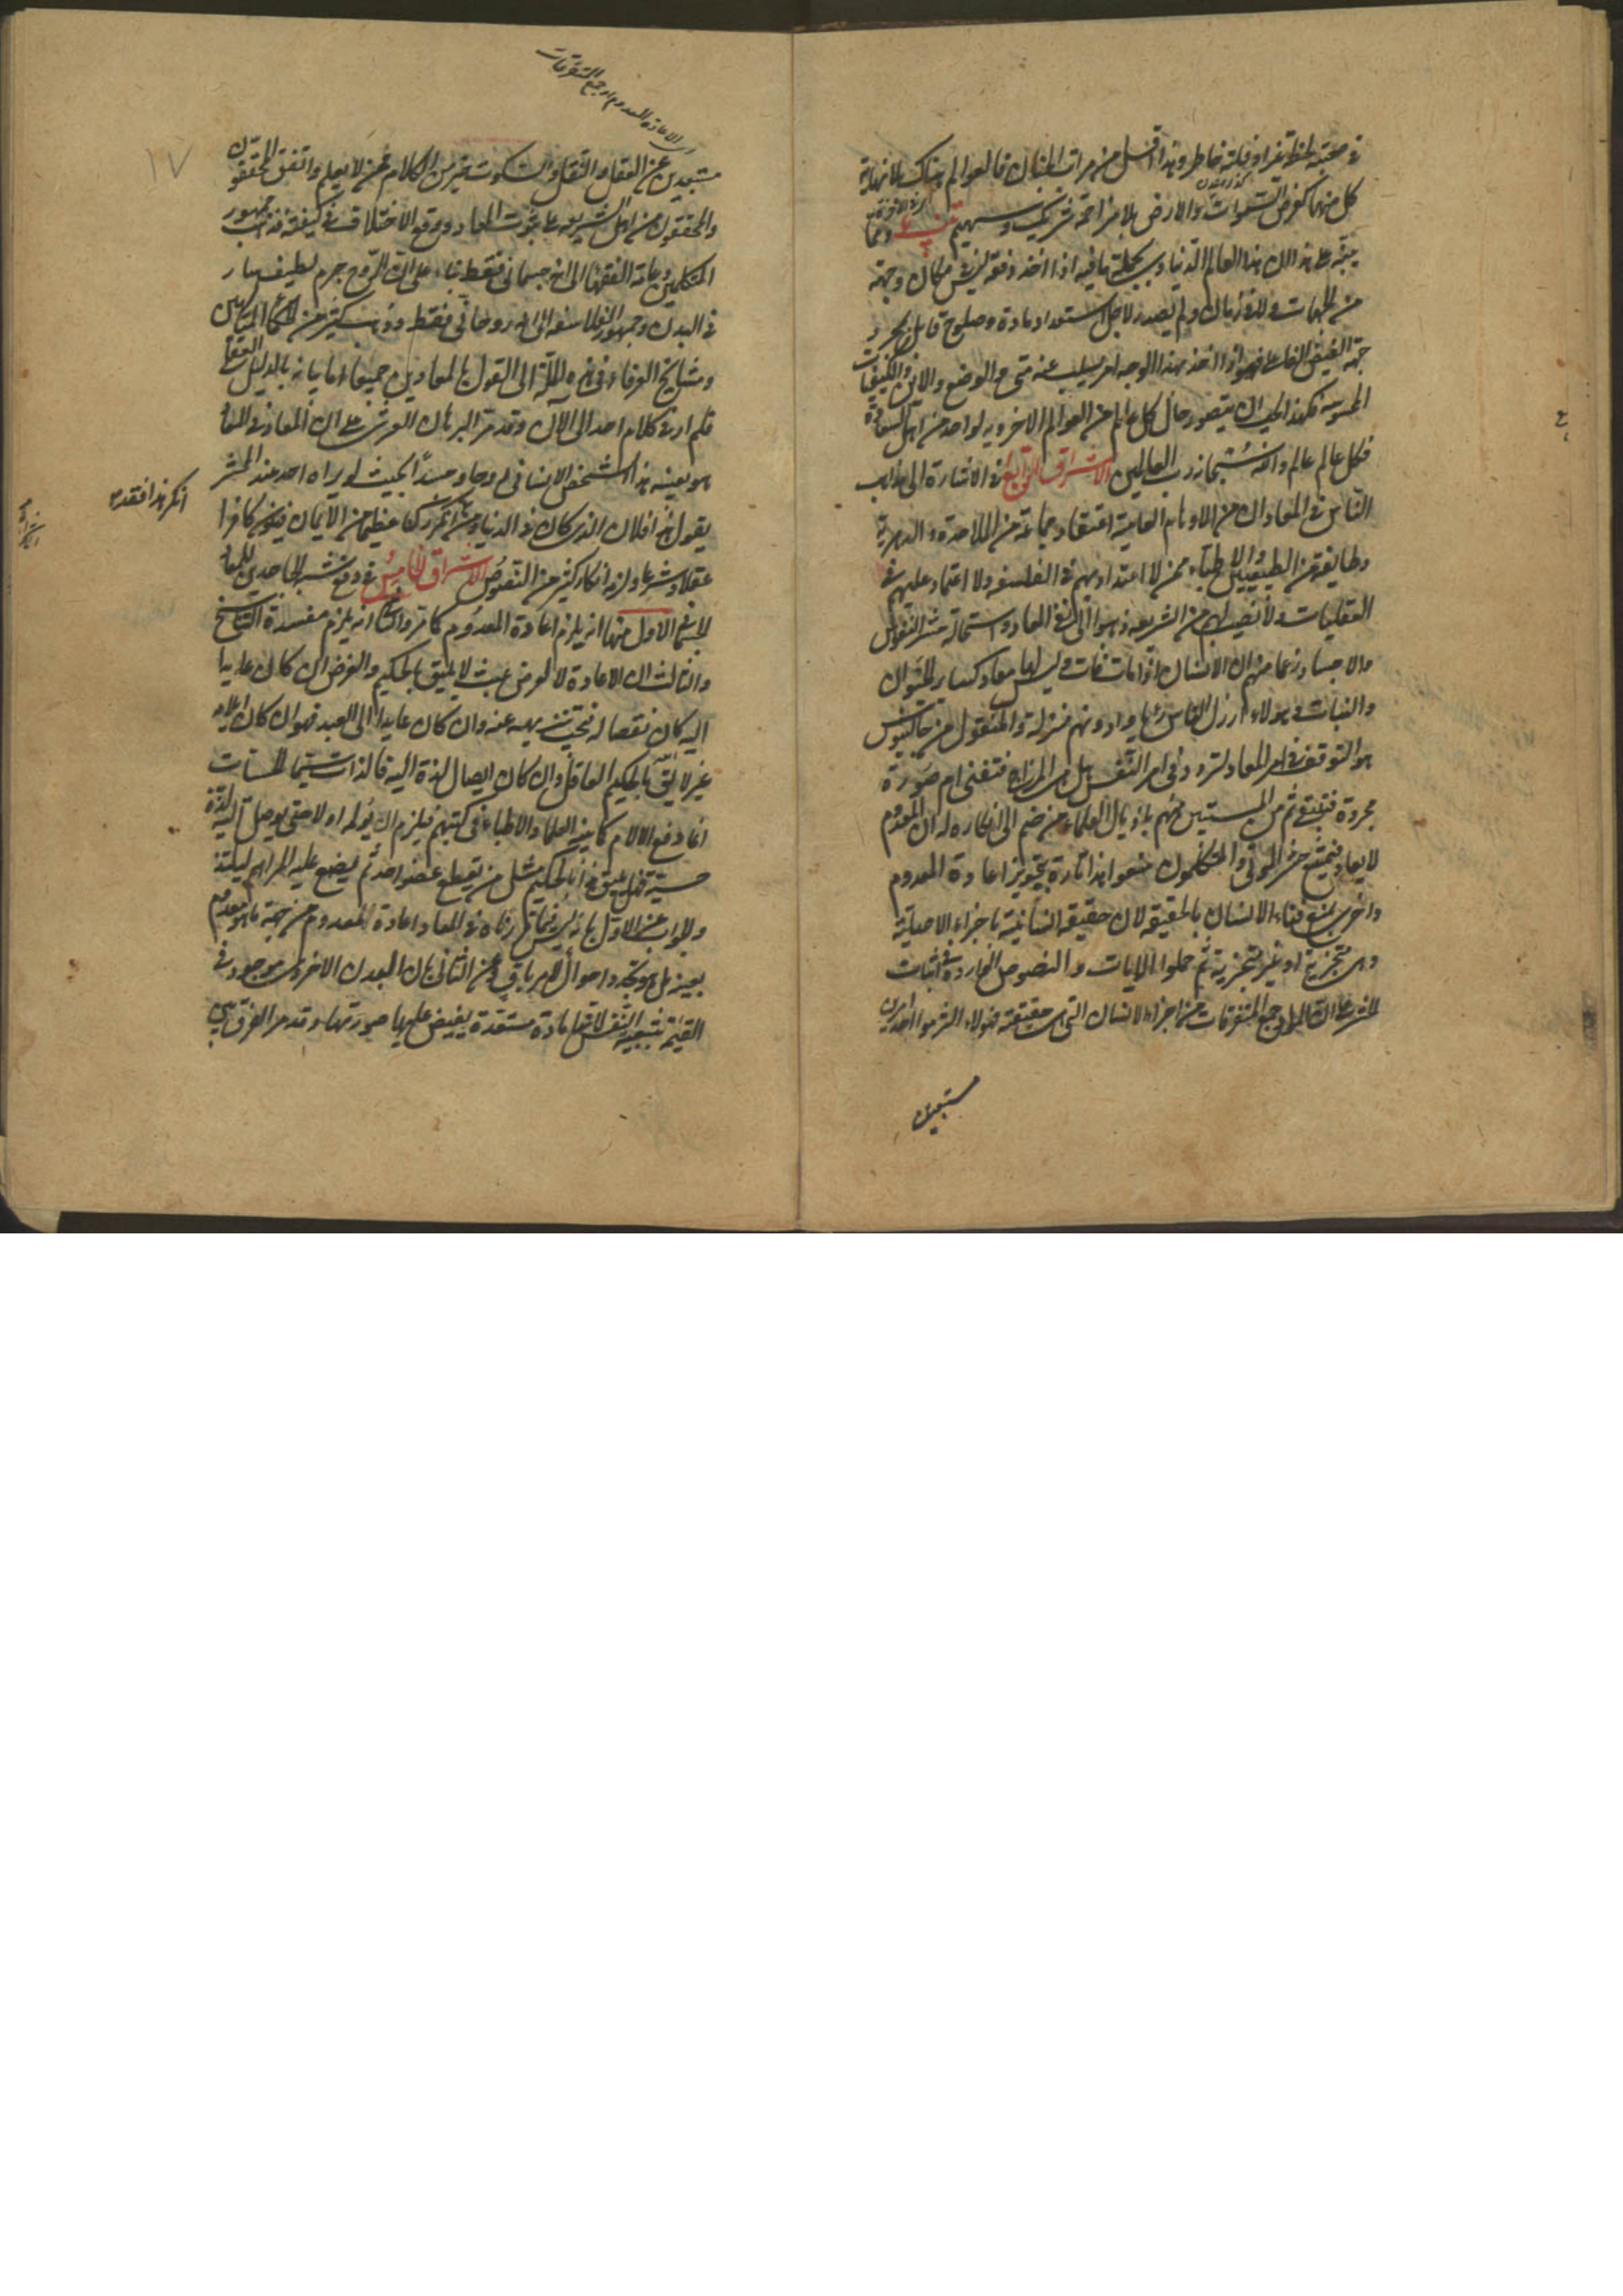 في صحته لحظة عين او فلتة خاطر وهذا اقل من مراتب الجنان فالعوالم هناك بلا نهاية
كل منها كعرض السموات والارض بلا مزاحمة شريك وسهيم تنبيه ومما
ينبه على هذا ان هذا العالم الدنياوي بجملة ما فيه اذا اخذ دفعة ليس مكان وجهة
من الجهات ولا زمان ولم يصدر لاجل استعداد مادة وصلوح قابل بل بمجرد
جهة الفيض الفاعلي فهو اذا اخذ بهذا الوجه امر يسلب عنه متى و الوضع والاين والكيفيات
المحسوسة فهكذا يجب ان يتصور حال كل عالم من العوالم الاخروية لواحد من اهل السعادة
فكل عالم عالم والله سبحانه رب العالمين الاشراق الرابع في الاشارة الى مذاهب
الناس في المعاد ان من الاوهام العامية اعتقاد جماعة من الملاحدة والدهرية
وطايفة من الطبيعيين والاطباء ممن لا اعتداد بهم في الفلسفة ولا اعتماد عليهم في
العقليات ولا نصيب لهم من الشريعة ذهبوا الى نفي المعاد واستحالة حشر النفوس
والاجساد زعما منهم ان الانسان اذا مات فات وليس لها معاد كساير الحيوان
والنبات وهولاء ارذل الناس رأيا وادونهم منزلة والمنقول من جالينوس
هو التوقف في امر المعاد لتردده في امر النفس هل هي المزاج فتفنى ام صورة
مجردة فتبقى ثم من المتشبثين منهم باذيال العلماء من ضم الى انكاره له ان المعدوم
لا يعاد فيمتنع حشر الموتى والمتكلمون منعوا هذا تارة بتجويز اعادة المعدوم
واخرى بمنع فناء الانسان بالحقيقة لان حقيقة انسانيته باجزاء الاصلية
وهي متجزية او غير متجزية ثم حملوا الايات والنصوص الواردة في اثبات
الحشر على ان المراد جمع المتفرقات من اجزاء الانسان التي هي حقيقته فهولاء التزموا احد امرين
مستبعدين
اي الاعادة المعدوم او جمع المتفرقات
١٧
مستبعدين عن العقل والنقل والسكوت خير من الكلام ممن لا يعلم واتفق المحققون
والمحققون من اهل الشريعة على ثبوت المعاد ووقع الاختلاف في كيفيته فذهب جمهور
المتكلمين وعامة الفقهاء الى انه جسماني فقط بناء على ان الروح جرم لطيف سار
في البدن وجمهور الفلاسفة الى انه روحاني فقط وذهب كثير من الحكماء المتألهين
ومشايخ العرفاء في هذه الملة الى القول بالمعادين جميعا اما بيانه بالدليل العقلي
فلم ار في كلام احد الى الان وقد مر البرهان العرشي على ان المعاد في المعاد
هو بعينه هذا الشخص الانساني روحا وجسدا بحيث لو يراه احد عند المحشر
يقول هذا فلان الذي كان في الدنيا ومن انكر ركنا عظيما من الايمان فيكون كافرا
انكر هذا فقد
عقلا وشرعا ولزمه انكار كثير من النصوص الاشراق الخامس في دفع شبه الجاحدين للمعاد
الجسماني الاول منها انه يلزم اعادة المعدوم كما مر والثاني انه يلزم مفسدة التناسخ
والثالث ان الاعادة لا لغرض عبث لا يليق بالحكيم والغرض ان كان عايدا
اليه كان نقصا له فيجب تنزيهه عنه وان كان عايدا الى العبد فهو ان كان ايلامه
غير لايق بالحكيم العاقل وان كان ايصال لذة اليه فاللذات سيما الحسيات
انما دفع الالام كما بينه العلماء والاطباء في كتبهم فيلزم ان يؤلمه اولا حتى يوصل اليه لذة
حسية فهل يليق هذا بالحكيم مثل من يقطع عضو احد ثم يضع عليه المراهم ليلتذ
والجواب عن الاول بما ليس في المعاد اعادة المعدوم من جهة ما هو معدوم
بعينه بل هو تجدد احوال لامر باق وعن الثاني بان البدن الاخروي موجود في
القيمة بتبعية النفس لا انها مادة مستعدة يفيض عليها صورتها وقد مر الفرق بين